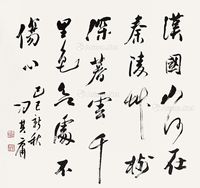 漢國山河在
秦陵草樹
深暮雲千
里色無處不
傷心
己巳新秋
馮其庸